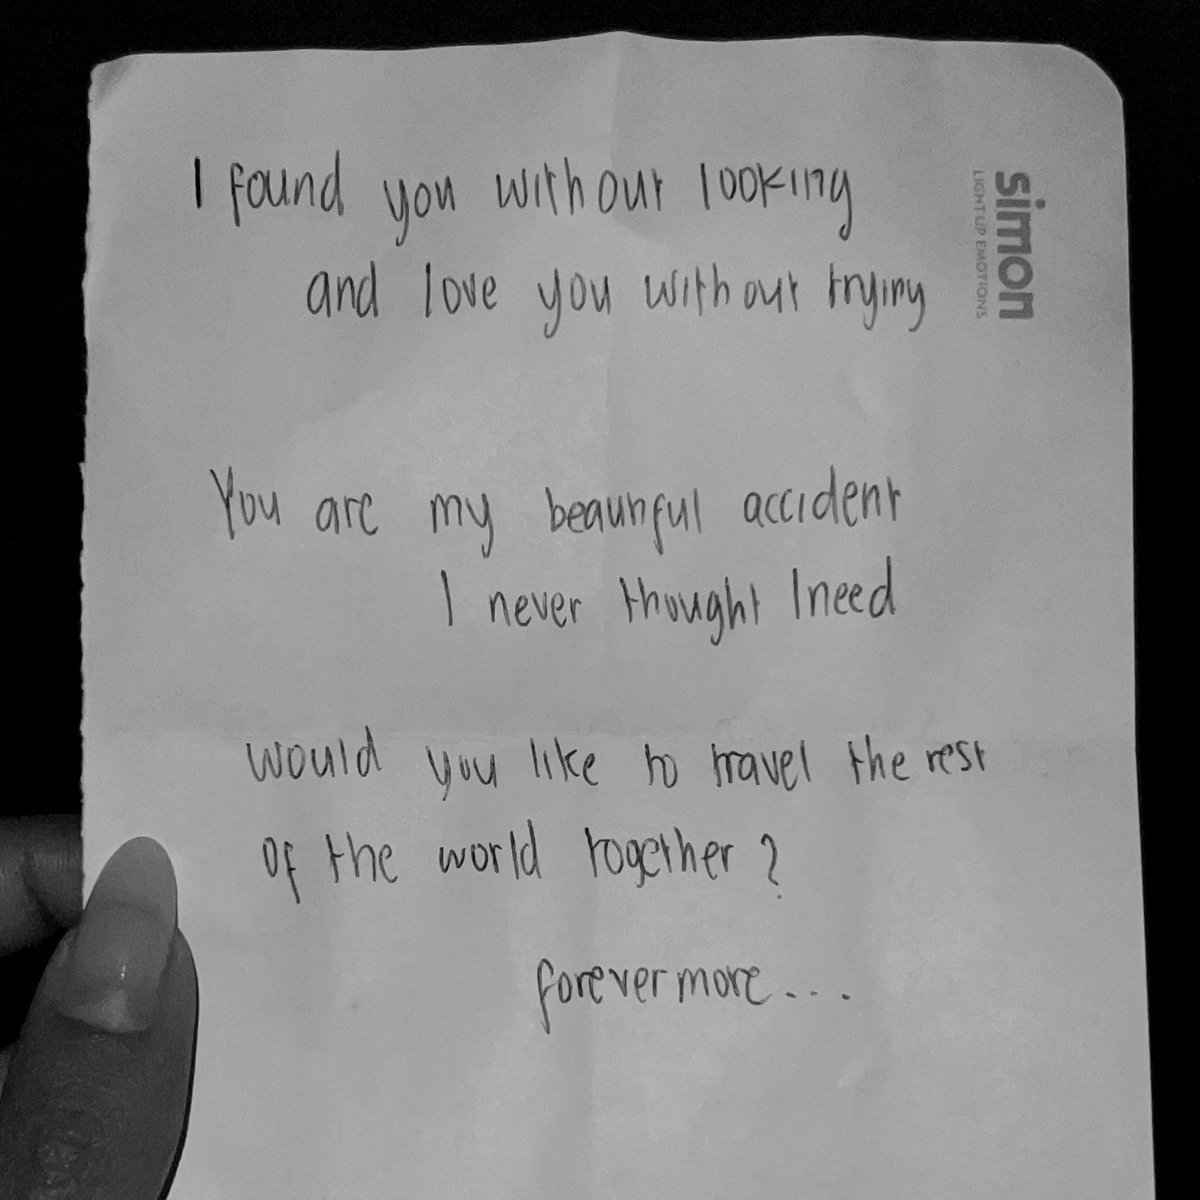 I found you without looking
and love you without trying
You are my beautiful accident
I never thought I need
would you like to travel the rest
of the world together?
forevermore...
simon
LIGHT UP EMOTIONS